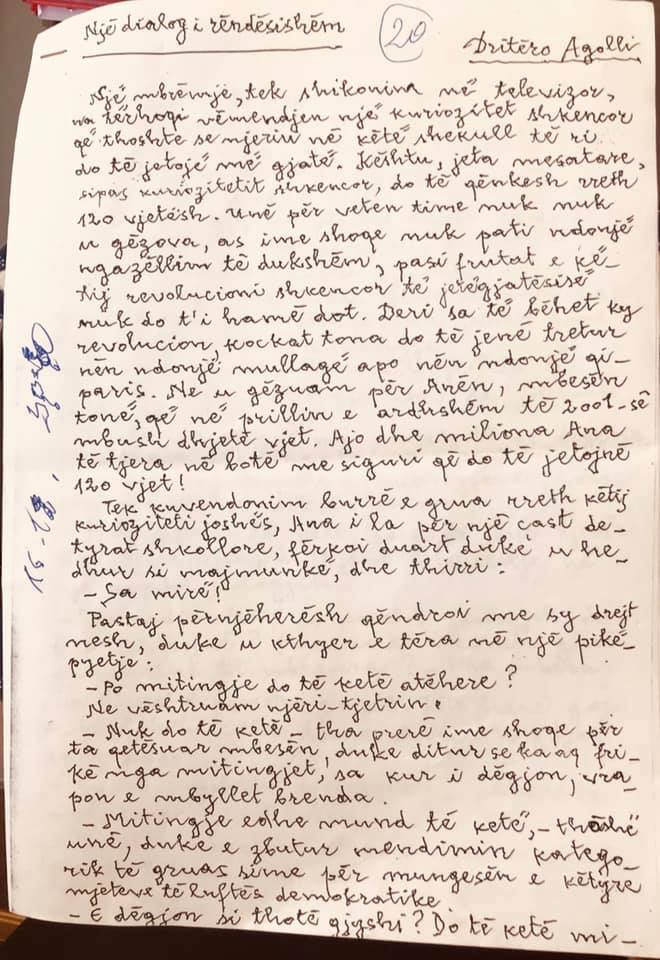 Një dialog i rëndësishëm
20
Dritëro Agolli
Një mbrëmje, tek shikonim në televizor,
na tërhoqi vëmendjen një kuriozitet shkencor
që thoshte se njeriu në këtë shekull të ri
do të jetojë më gjatë. Kështu, jeta mesatare,
sipas kuriozitetit shkencor, do të qënkesh rreth
120 vjetësh. Unë për veten time nuk nuk
u gëzova, as ime shoqe nuk pati ndonjë
ngazëllim të dukshëm, pasi frutat e kë-
tij revolucioni shkencor të jetëgjatësisë
nuk do t'i hamë dot. Deri sa të bëhet ky
revolucion, kockat tona do të jenë tretur
nën ndonjë mullagë apo nën ndonjë qi-
paris. Ne u gëzuam për Anën, mbesën
tonë, që në prillin e ardhshëm të 2001-së
mbush dhjetë vjet. Ajo dhe miliona Ana
të tjera në botë me siguri që do të jetojnë
120 vjet!
Tek kuvendonim burrë e grua rreth këtij
kurioziteti joshës, Ana i la për një çast de-
tyrat shkollore, fërkoi duart duke u he-
dhur si majmunkë, dhe thirri:
- Sa mirë!
Pastaj përnjëherësh qëndroi me sy drejt
nesh, duke u kthyer e tëra në një pikë-
pyetje:
- Po mitingje do të ketë atëhere?
Ne vështruam njëri-tjetrin.
- Nuk do të ketë - tha prerë ime shoqe për
ta qetësuar mbesën, duke ditur se ka aq fri-
kë nga mitingjet, sa kur i dëgjon, vra-
pon e mbyllet brenda.
- Mitingje edhe mund të ketë, - thashë
unë, duke e zbutur mendimin katego-
rik të gruas sime për mungesën e këtyre
mjeteve të luftës demokratike
- E dëgjon si thotë gjyshi? Do të ketë mi-